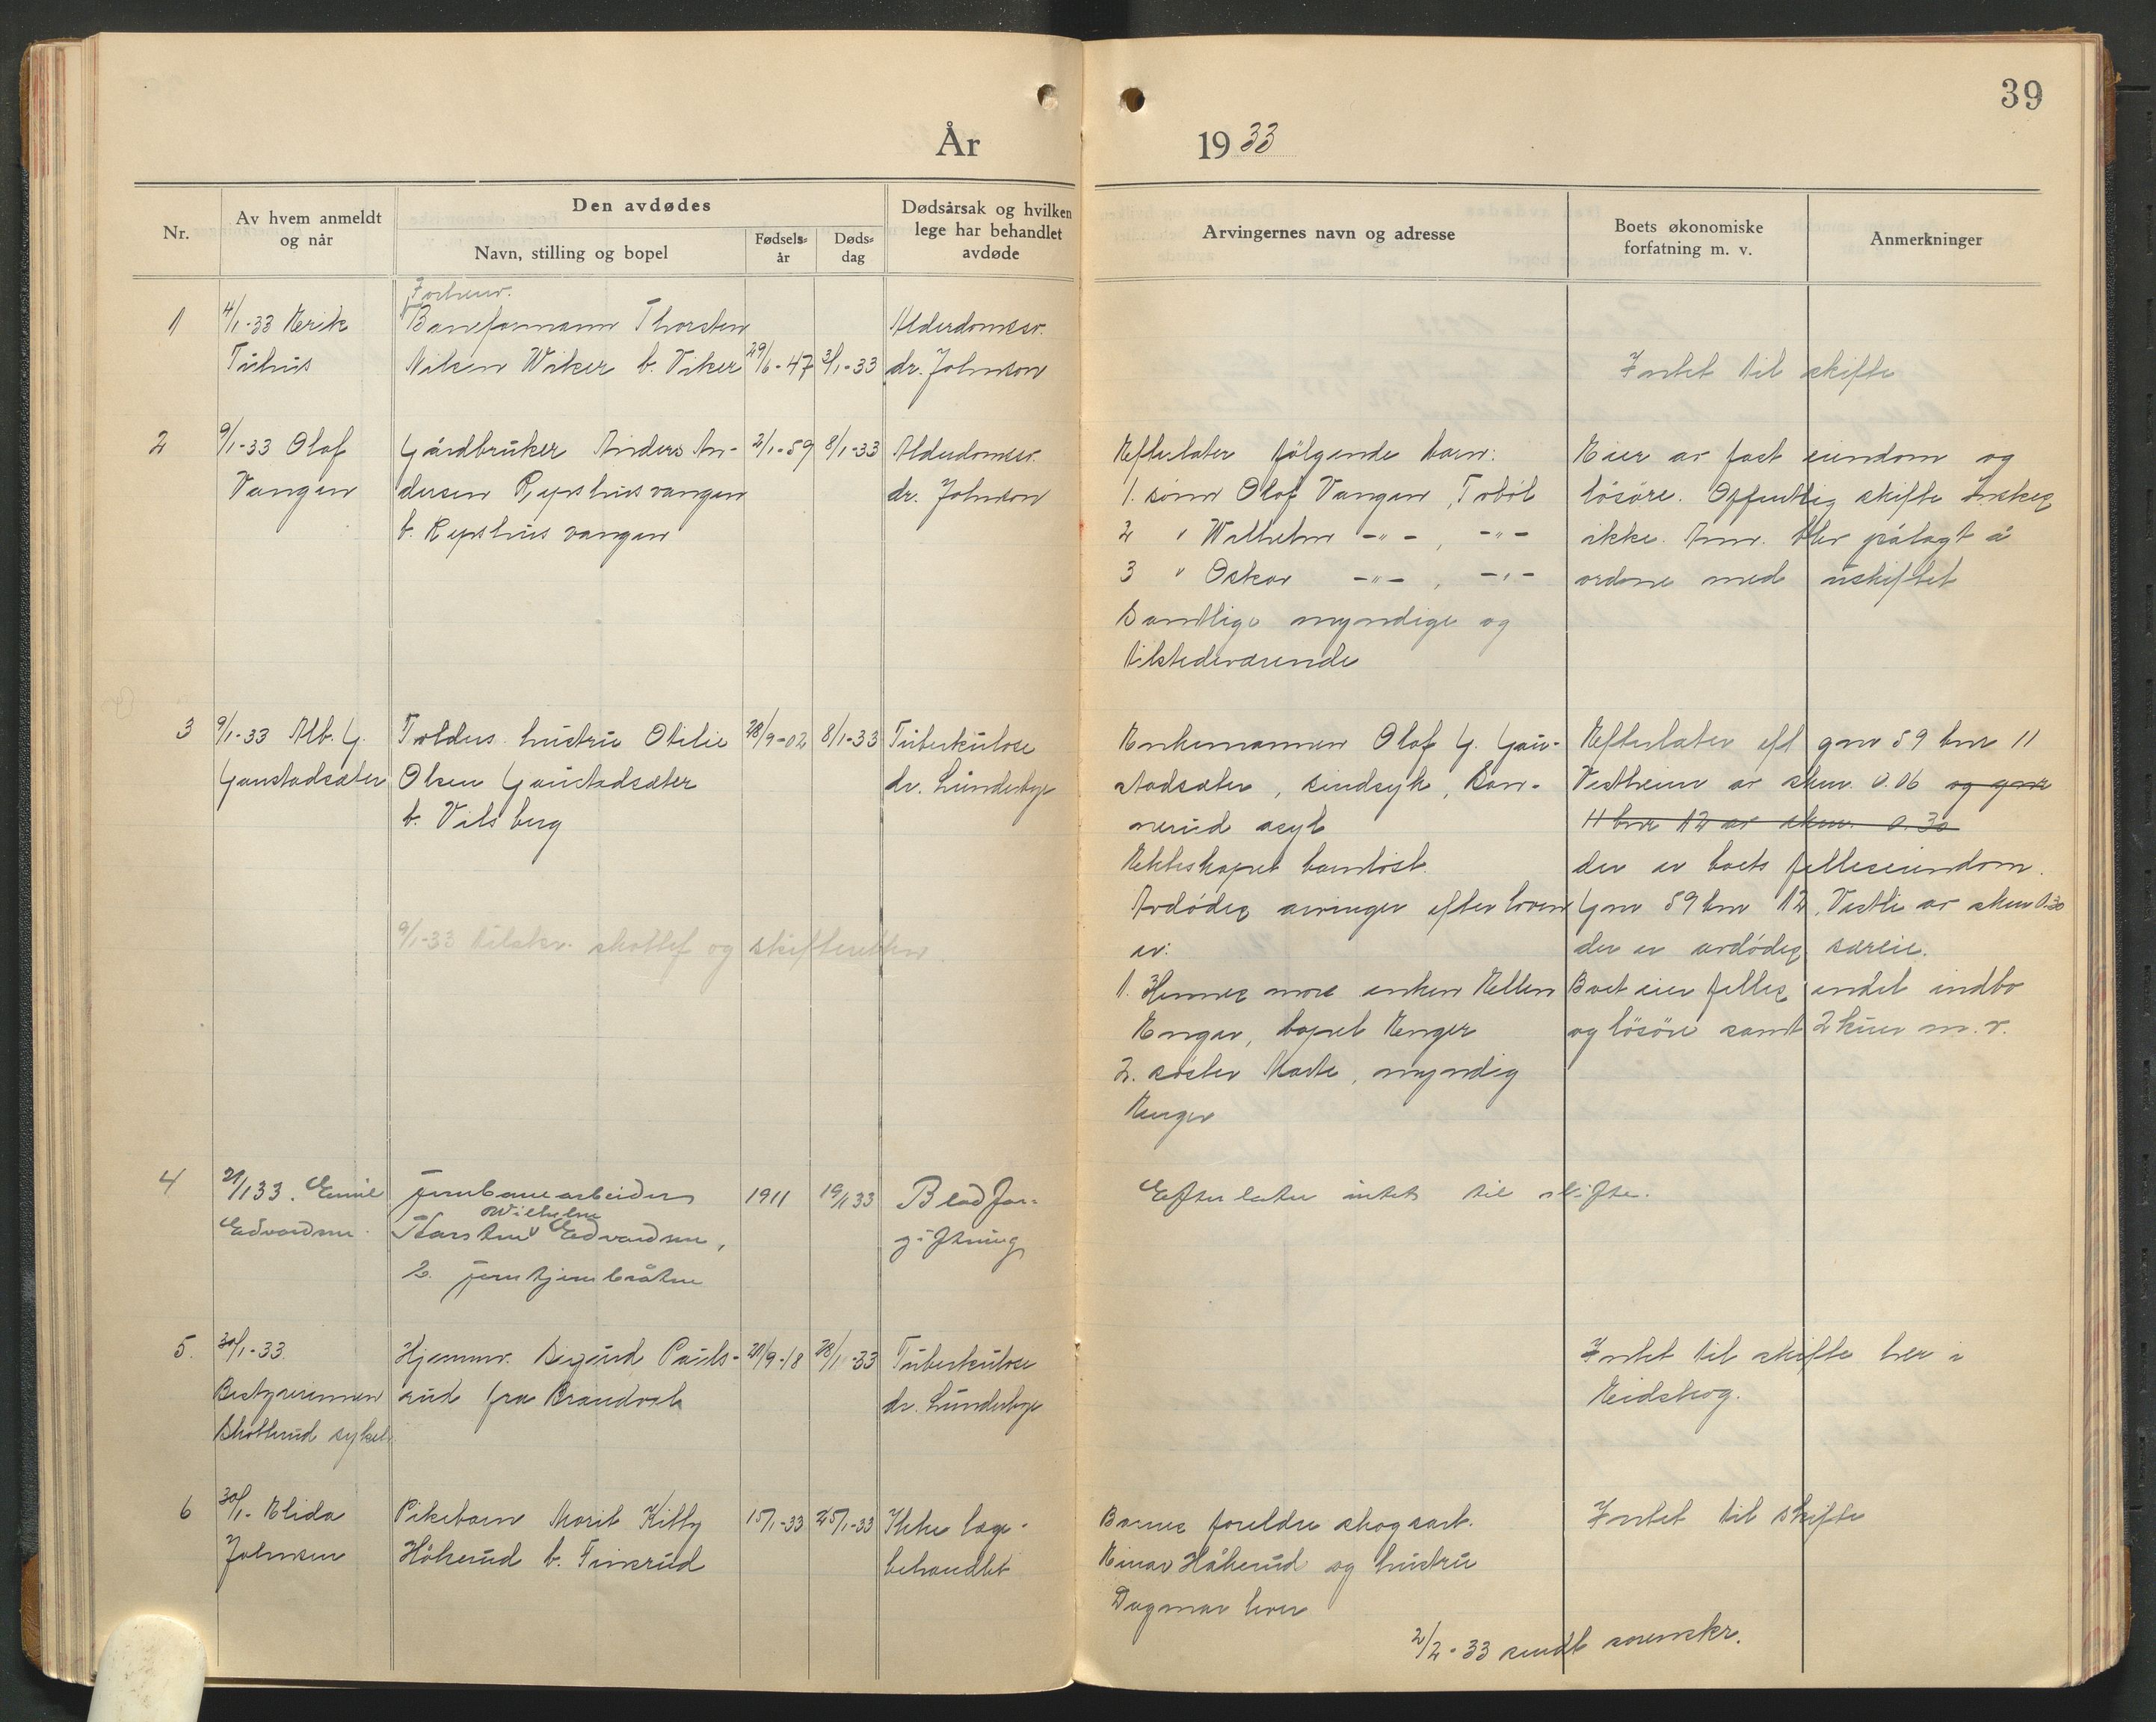 39
År 1933
Nr.
Av hvem anmeldt
og når
Den avdødes
Navn, stilling og bopel
Fødsels-
år
Døds-
dag
Dødsårsak og hvilken
lege har behandlet
avdøde
Arvingernes navn og adresse
Boets økonomiske
forfatning m. v.
Anmerkninger
1
4/1-33 Erik
Tuhus
Forhenv.
Baneformann Thorsten
Nilsen Wiker b. Viker
29/6-47
3/1-33
Alderdomssv.
dr. Johnson
Intet til skifte
2
9/1-33 Olaf
Vangen
Gårdbruker Anders An-
dersen Repshusvangen
b. Repshusvangen
2/1-59
8/1-33
Alderdomssv.
dr. Johnson
Efterlater følgende barn:
1. sønn Olaf Vangen, Tobøl
2 " Wilhelm -"-, -"-
3 " Oskar -"-, -"-
Samtlige myndige og
tilstedeværende
Eier av fast eiendom og
løsøre. Offentlig skifte ønskes
ikke. Anm. blev pålagt å
ordne med uskiftet
3
9/1-33 Alb. G.
Gaustadsæter
Tolder hustru Otilie
Olsen Gaustadsæter
b. Vilsberg
9/1-33 tilskr. skattef og skifteretten.
28/9-02
8/1-33
Tuberkulose
dr. Lunderbye
Enkemannen Olaf G. Gau-
stadsæter, sindsyk, San-
nerud asyl
Ekteskapet barnløst.
Avdødes arvinger efter loven
er:
1. Hennes mor enken Ellen
Enger, bopel Enger
2. søster Marte, myndig
Enger
Efterlater eft gnr 59 bnr 11
Vestheim av skm. 0.06 og gnr
11 bnr 12 av skm. 0.30
der er boets felleseiendom.
Gnr 59 bnr 12, Vestli av skm 0.30
der er avdødes særeie.
Boet eier felles endel indbo
og løsøre samt 2 kuer m.v.
4
21/1 33. Emil
Edvardsen
Jernbanearbeider
Wilhelm
Karsten Edvardsen,
b. Jerntjernbråten
1911
19/1 33
Blodfor-
giftning
Efterlater intet til skifte.
5.
30/1-33.
Bestyrerinnen
Skotterud sykeh.
Hjemmv. Sigurd Pauls-
rud fra Brandval
21/9-18
28/1-33
Tuberkulose
dr. Lunderbye
Intet til skifte her i
Eidskog.
6
30/1- Elida
Johnsen
Pikebarn Marit Kitty
Håkerud b. Finsrud
15/1-33
25/1-33
Ikke læge-
behandlet
Barnes foreldre skogsarb.
Einar Håkerud og hustru
Dagmar lever
Intet til skifte
2/2-33 sendt sorenskr.